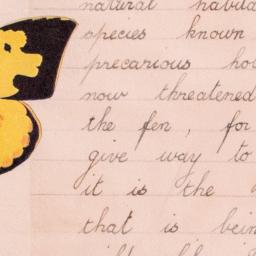 natural habita
species known
precarious ho
now threatened
the fen, for
give way to
it is the
that is bein